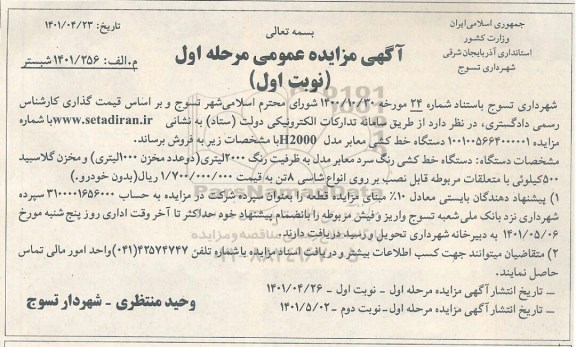 بسمه تعالی
جمهوری اسلامی ایران
وزارت کشور
استانداری آذربایجان شرقی
شهرداری تسوج
تاریخ: ۱۴۰۱/۰۴/۲۳
م.الف: ۱۴۰۱/۲۵۶ شبستر
آگهی مزایده عمومی مرحله اول
(نوبت اول)
شهرداری تسوج باستناد شماره ۲۴ مورخه ۱۴۰۰/۱۰/۳۰ شورای محترم اسلامی شهر تسوج و بر اساس قیمت گذاری کارشناس
رسمی دادگستری، در نظر دارد از طریق سامانه تدارکات الکترونیکی دولت (ستاد) به نشانی www.setadiran.ir با شماره
مزایده ۱۰۰۱۰۰۵۶۶۴۰۰۰۰۰۱ دستگاه خط کشی معابر مدل H2000 با مشخصات زیر به فروش برساند.
مشخصات دستگاه: دستگاه خط کشی رنگ سرد معابر مدل به ظرفیت رنگ ۲۰۰۰لیتری(دوعدد مخزن ۱۰۰۰لیتری) و مخزن گلاسبید
۵۰۰کیلوئی با متعلقات مربوطه قابل نصب بر روی انواع شاسی ۸تن به قیمت ۱/۷۰۰/۰۰۰/۰۰۰ ریال(بدون خودرو.)
۱) پیشنهاد دهندگان بایستی معادل ۱۰٪ مبنای مزایده قطعه را بعنوان سپرده شرکت در مزایده به حساب ۳۱۰۰۰۰۱۶۵۶۰۰۰ سپرده
شهرداری نزد بانک ملی شعبه تسوج واریز و فیش مربوطه را بانضمام پیشنهاد خود حداکثر تا آخر وقت اداری روز پنج شنبه مورخ
۱۴۰۱/۰۵/۰۶ به دبیرخانه شهرداری تحویل و رسید دریافت دارند.
۲) متقاضیان میتوانند جهت کسب اطلاعات بیشتر و دریافت اسناد مزایده با شماره تلفن ۴۲۵۷۴۷۴۷(۰۴۱) واحد امور مالی تماس
حاصل نمایند.
— تاریخ انتشار آگهی مزایده مرحله اول - نوبت اول - ۱۴۰۱/۰۴/۲۶
— تاریخ انتشار آگهی مزایده مرحله اول- نوبت دوم - ۱۴۰۱/۵/۰۲
وحید منتظری - شهردار تسوج